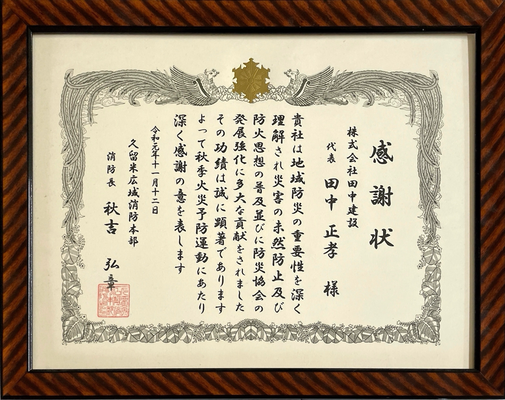 感謝状
株式会社田中建設
代表 田中 正孝 様
貴社は地域防災の重要性を深く
理解され災害の未然防止及び
防火思想の普及並びに防災協会の
発展強化に多大な貢献をされました
その功績は誠に顕著であります
よって秋季火災予防運動にあたり
深く感謝の意を表します
令和元年十一月十二日
久留米広域消防本部
消防長 秋吉 弘章